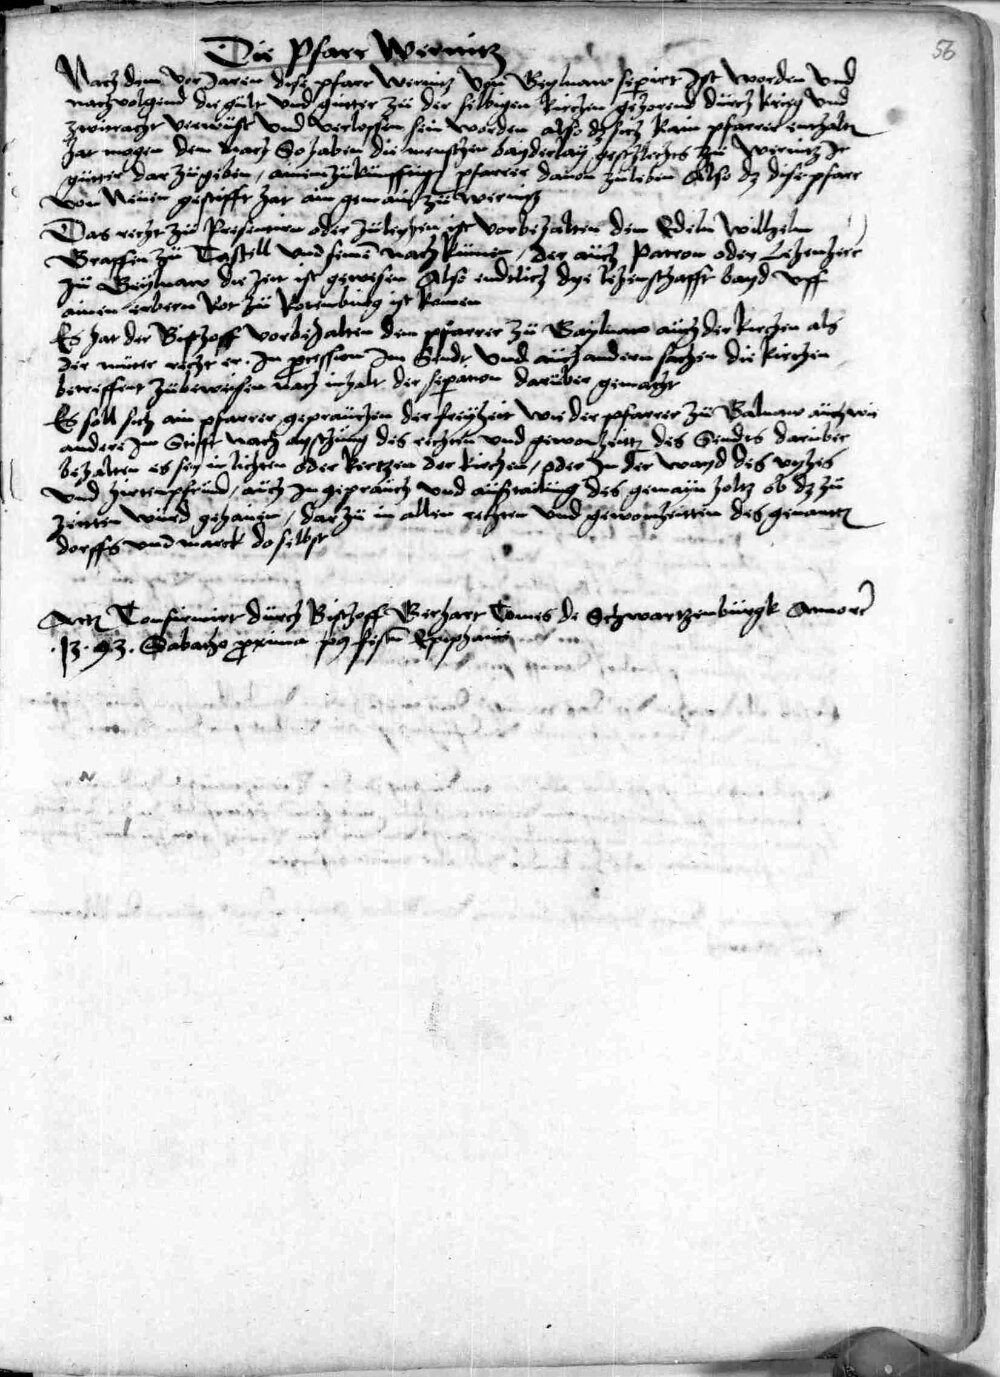 56
Die Pfarr Wernitz
Nach dem vor Jaren dise pfarr wernitz von Beylnaw sepirt Ist worden vnd
nachvolgend die gült vnd gütter zü der selbigen kirchen gehorend dürch krieg vnd
zwitracht verwüst vnd verlossen sein worden also dz sich kain pfarrer enthaltn
hat mogen dem nach So haben die menschen bayderlay geschlechts zü wernitz Ir
gütter dar zü geben / ainem zükünfftigen pfarrer dauon zü leben Also dz dise pfarr
von Newen gestifft hat ain gemain zü wernitz
Das recht zü Presentirn oder zü leyhen ist vorbehalten dem Edeln Willhelm
Graffen zü Castell vnd seine nachkümen / der auch Patron oder Lehenherr
zü Beylnaw die zeit ist gewesen Also endtlich dye lehenschafft bayd vff
ainen erbern Rot zü Rotenbürg ist komen
Es hat der Bischoff vorbehalten dem pfarrer zü Baylnaw auch der kirchen als
der müter recht er . In pcession Im Sendt vnd auch andern sachen die kirchen
betreffent zübeweisen nach inhalt der sepation darüber gemacht
Es soll sich ain pfarrer gepraüchen der freyheit wie der pfarrer zü Balnaw auch wie
andere Im Stifft nach des rechten vnd gewonheitt des Sendts darüber
behalten es sey in lichten oder kertzen der kirchen / oder In der wayd des vyhes
vnd hirtenpfründ / auch In gepraüch vnd aüßtailüng des gemayn holtz ob dz zü
zeitten würd gehauen / dar zü in allen rechten vnd gewonheitten des genantn
dorffs vnd marck do selbst
Confirmirt dürch Bischoff Gerhart Comes de Schwartzenbürgk Anno
. 13 . 93 . Sabatho proxima p9 festu Epiphanie